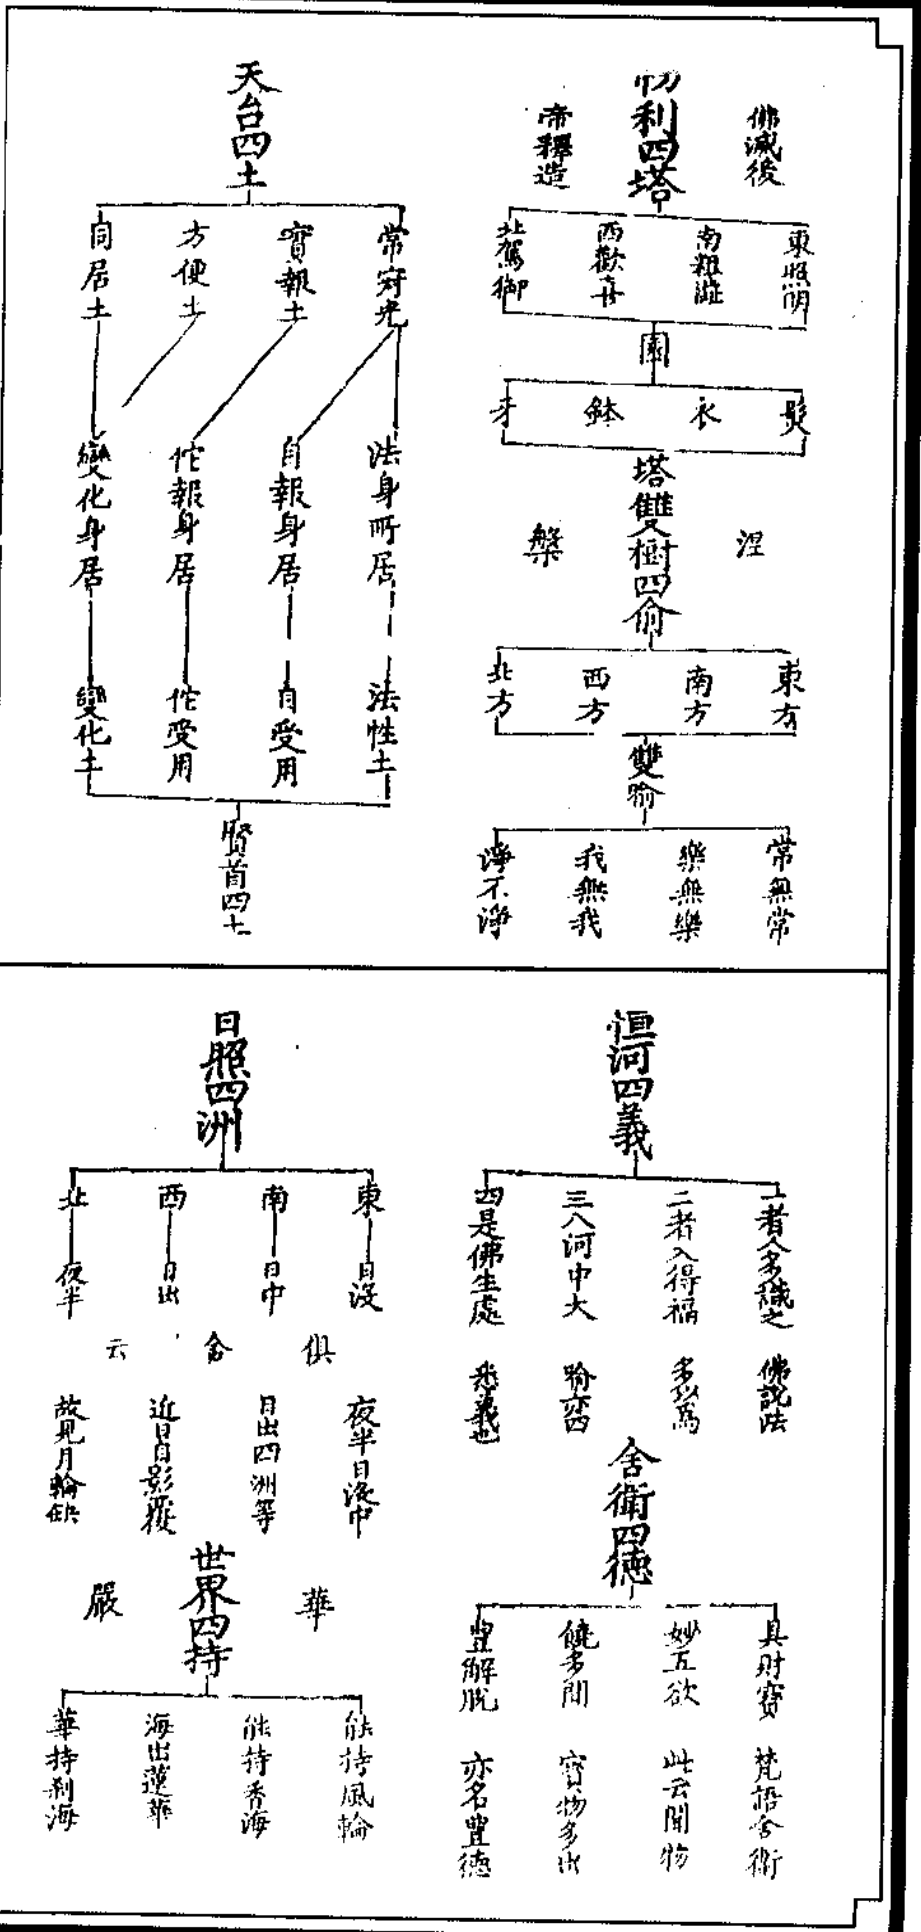 佛滅後
忉利四塔
帝釋造
東照明
南麤澁
西歡喜
北駕御
園
髮
衣
鉢
牙
塔雙樹四俞
涅
槃
東方
南方
西方
北方
雙喻
常無常
樂無樂
我無我
淨不淨
天台四土
常寂光
實報土
方便土
同居土
法身所居
自報身居
佗報身居
變化身居
法性土
自受用
佗受用
變化土
賢首四土
恒河四義
一者人多識之
二者入得福
三八河中大
四是佛生處
佛說法
多以為
喻亦四
悉義也
舍衛四德
具財寶
妙五欲
饒多聞
豐解脫
梵語舍衛
此云聞物
寶物多出
亦名豐德
日照四洲
東
南
西
北
日沒
日中
日出
夜半
俱
舍
云
夜半日沒中
日出四洲等
近日自影覆
故見月輪缺
華
世界四持
嚴
能持風輪
能持香海
海出蓮華
華持剎海